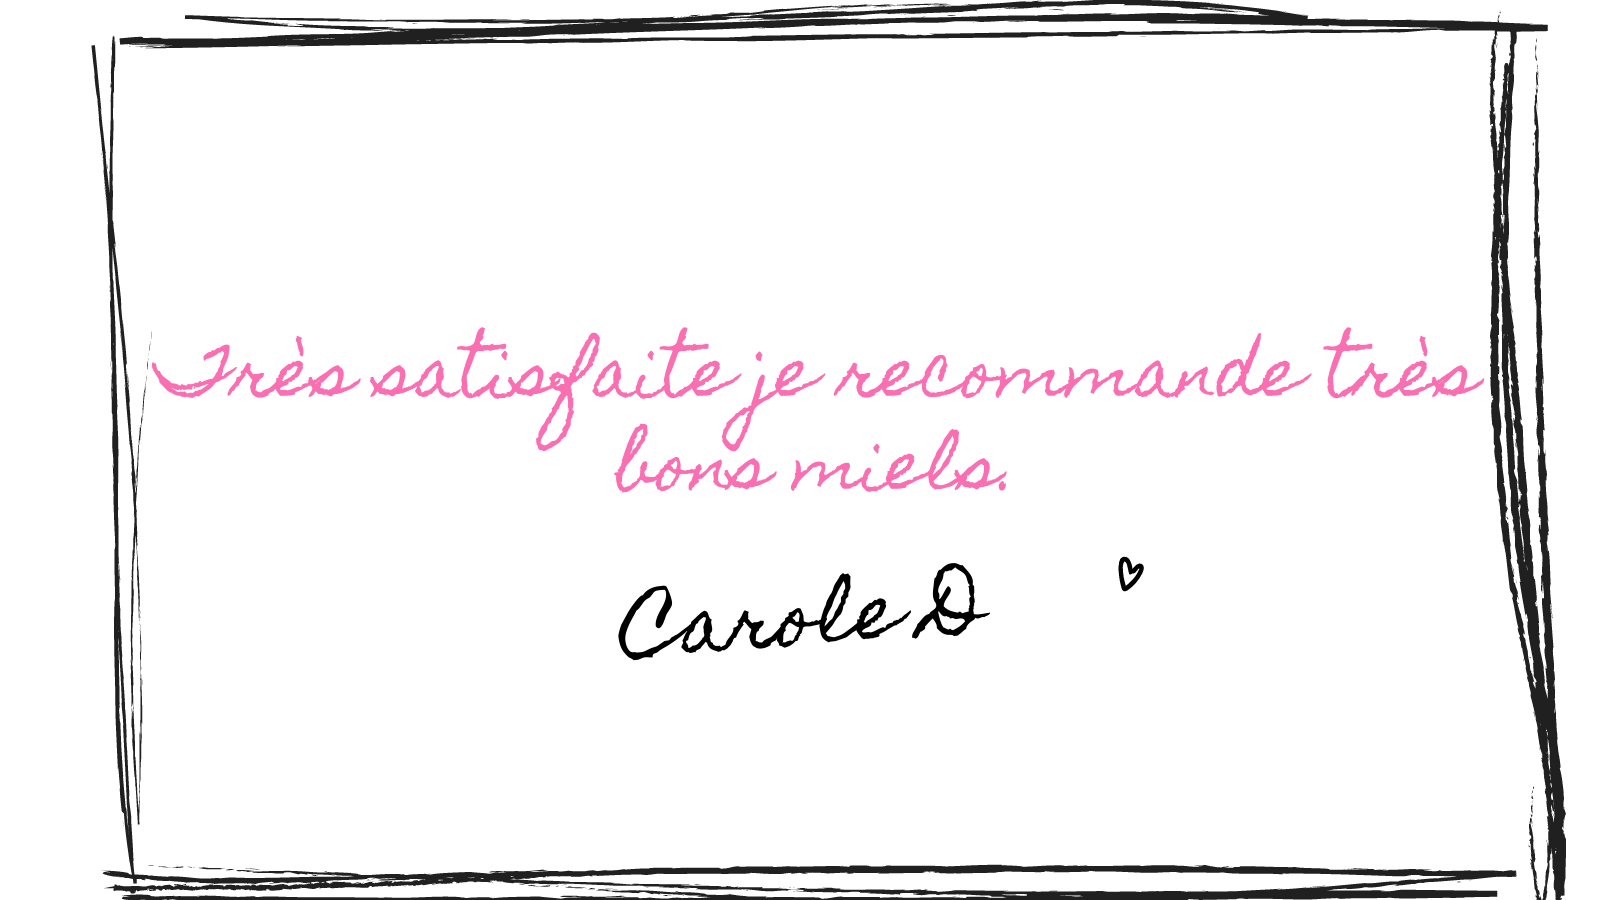 Très satisfaite je recommande très
bons miels.
Carole D